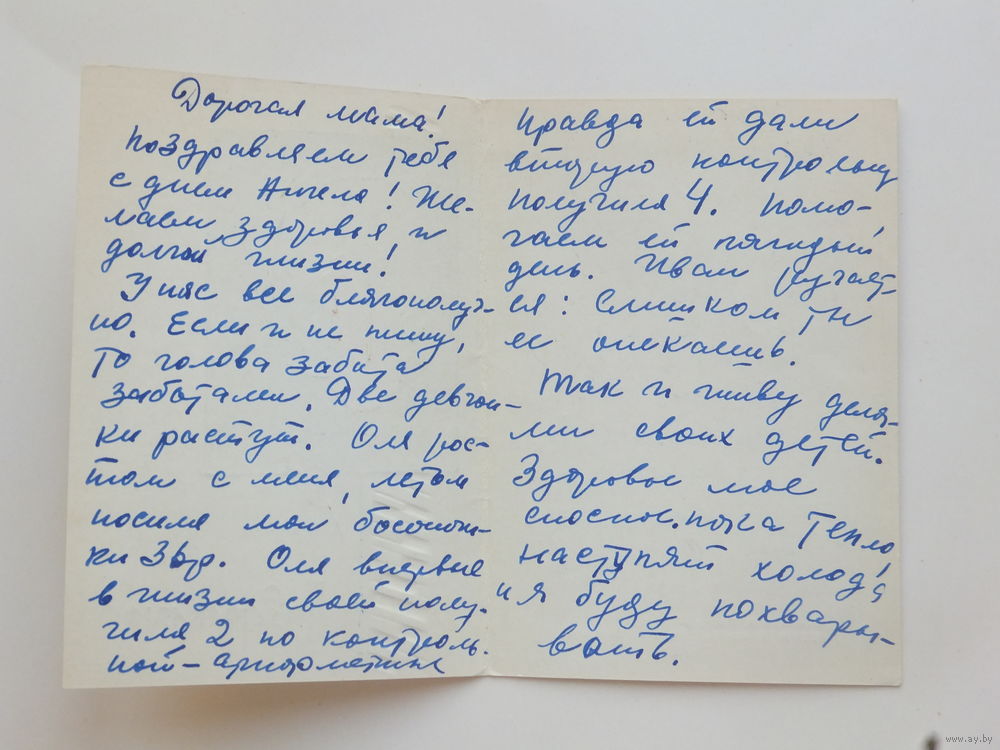 Дорогая мама!
Поздравляем тебя
с днем Ангела! Же-
лаем здоровья и
долгой жизни!
У нас все благополуч-
но. Если и не пишу,
то голова забита
заботами. Две девчон-
ки растут. Оля рос-
том с меня, летом
носила мои босонож-
ки 36р. Оля впервые
в жизни своей полу-
чила 2 по контроль-
ной - арифметике
Правда ей дали
вторую контрольну
получила 4. Помо-
гаем ей каждый
день. Иван ругает-
ся: Слишком ты
ее опекаешь.
Так и живу дела-
ми своих детей.
Здоровье мое
сносное. пока тепло
наступят холода
и я буду похвары-
вать.
www.ay.by